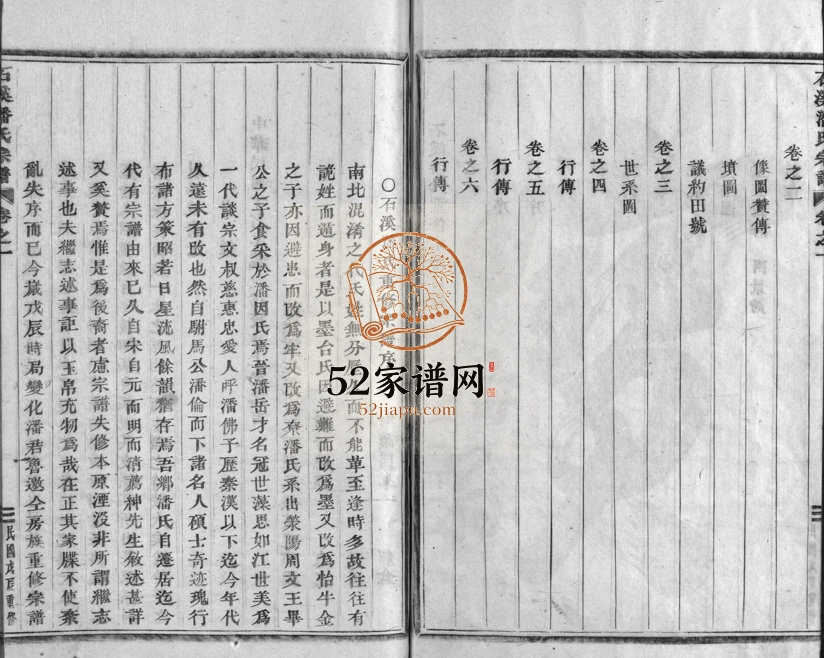 石溪潘氏宗譜
卷之二
像圖贊傳
墳圖
議約田號
卷之三
世系圖
卷之四
行傳
卷之五
行傳
卷之六
行傳
○石溪
重修
序
南北混淆之代氏姓無分
而不能革至逢時多故往往有
詭姓而遁身者是以墨台氏因避難而改爲墨又改爲怡牛金
之子亦因避患而改爲牢又改爲寮潘氏系出滎陽周文王畢
公之子食采於潘因氏焉晉潘岳才名冠世藻思如江世美爲
一代談宗文叔慈惠忠愛人呼潘佛子歷秦漢以下迄今年代
久遠未有改也然自駙馬公潘倫而下諸名人碩士奇迹瑰行
布諸方策昭若日星流風餘韻猶存焉吾鄉潘氏自遷居迄今
代有宗譜由來已久自宋自元而明而清薦紳先生敘述甚詳
又奚贅焉惟是爲後裔者慮宗譜失修本原湮沒非所謂繼志
述事也夫繼志述事詎以玉帛充物爲哉在正其家牒不使紊
亂失序而已今歲戊辰時局變化潘君魯邀仝房族重修宗譜
石溪潘氏宗譜
卷之一
民國戊辰重修
52家谱网
52jiapu.com